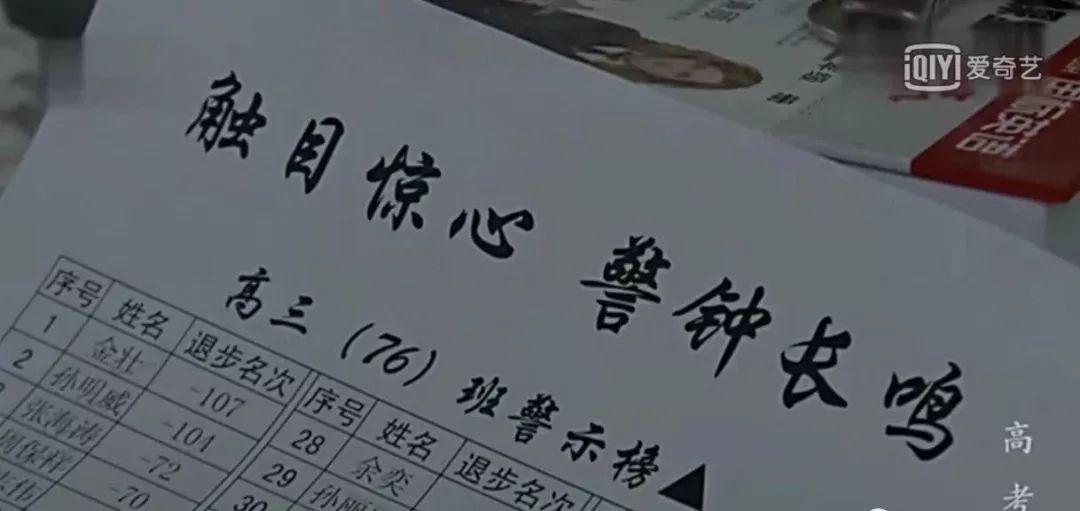 iQIYI 爱奇艺
触目惊心 警钟长鸣
高三(76)班警示榜▲
序号 姓名 退步名次 序号 姓名 退步名次
1 金壮 -107 28 余奕
2 孙明威 -104 29
张海涛 -72 30
周保样 -70
高考